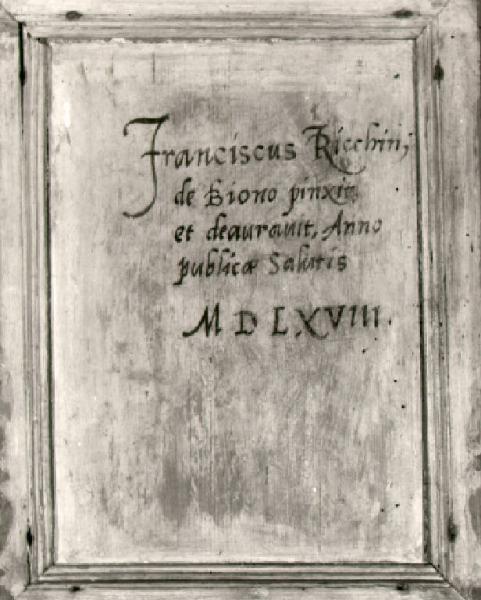 Franciscus Ricchin,
de Biono pinxit,
et deauravit, Anno
publicæ Salutis
M D LXVIII.